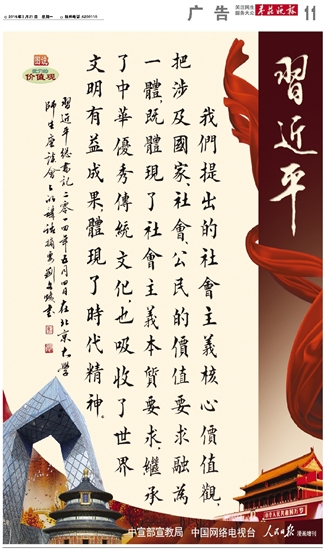 2016年3月21日 星期一
广告
枣庄晚报
11
价值观
習近平
我們提出的社會主義核心價值觀，
把涉及國家、社會、公民的價值要求融為
一體，既體現了社會主義本質要求，繼承
了中華優秀傳統文化，也吸收了世界
文明有益成果，體現了時代精神。
習近平總書記二零一四年五月四日在北京大學
師生座談會上的講話摘要
中宣部宣教局 中国网络电视台 人民日报 漫画增刊